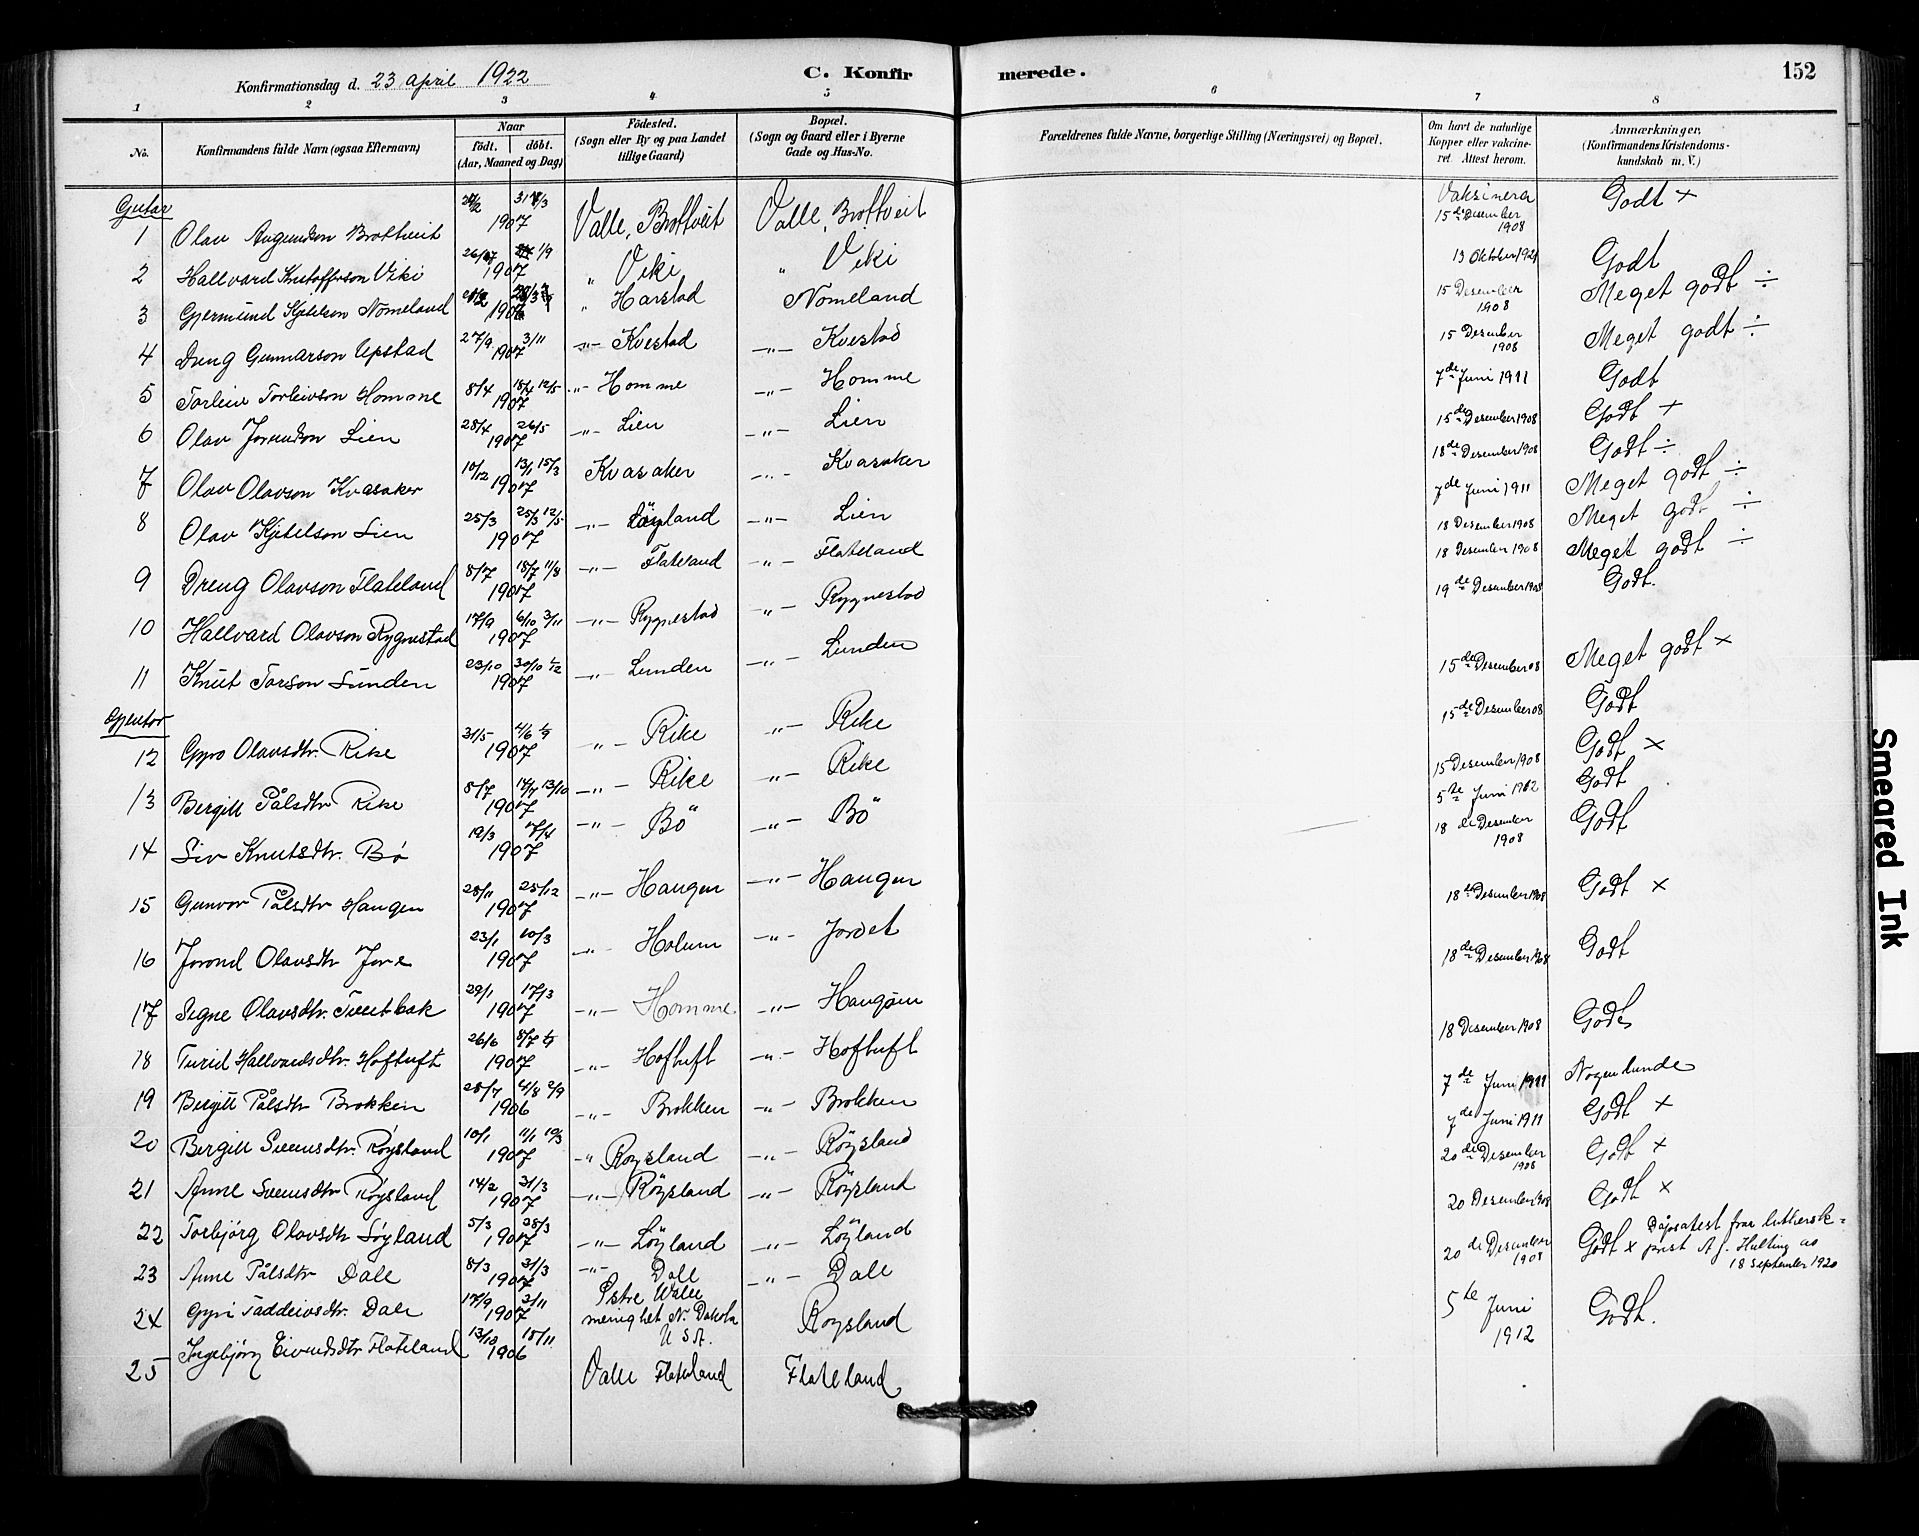 Konfirmationsdag d. 23 April 1922
C. Konfirmerede.
152
1 2 3 4 5 6 7 8
No.
Konfirmandens fulde Navn (ogsaa Efternavn)
Naar
födt. döbt.
(Aar, Maaned og Dag)
Födested.
(Sogn eller By og paa Landet tillige Gaard)
Bopæl.
(Sogn og Gaard eller i Byerne Gade og Hus-No.
Forældrenes fulde Navne, borgerlige Stilling (Næringsvei) og Bopæl.
Om havt de naturlige Kopper eller vakcineret. Attest herom.
Anmærkninger,
(Konfirmandens Kristendomskundskab m. V.)
Gutar
1 Olav Augundson Brottveit 1907 Valle, Brottveit Valle, Brottveit Vaksinera 15de Desember 1908 Godt ×
2 Hallvard Kristofferson Viki 1907 " Viki " Viki 13 Oktober 1921 Godt
3 Gjermund Kjetelson Nomeland " Harstad Nomeland 15 Desember 1908 Meget godt ÷
4 Dreng Gunnarson Upstad 27/9 3/11 1907 -"- Kvestad -"- Kvestad 15 Desember 1908 Meget godt ÷
5 Torleiv Torleivson Homme 8/4 18/4 12/5 1907 -"- Homme -"- Homme 7de Juni 1911 Godt
6 Olav Jorundson Lien 28/4 26/5 1907 -"- Lien -"- Lien 15de Desember 1908 Godt +
7 Olav Olavson Kvasaker 10/12 13/1 15/3 1907 Kvasaker -"- Kvasaker 18de Desember 1908 Godt ÷
8 Olav Kjetelson Lien 25/3 25/3 12/5 1907 -"- Löyland -"- Lien 7de Juni 1911 Meget godt ÷
9 Dreng Olavson Flateland 8/7 18/7 11/8 1907 -"- Flateland -"- Flateland 18 Desember 1908 Meget godt ÷
10 Hallvard Olavson Rygnestad 17/9 6/10 3/11 1907 -"- Rygnestad -"- Rygnestad 18 Desember 1908 Meget godt ÷
11 Knut Torson Lunden 23/10 30/10 1/12 1907 -"- Lunden -"- Lunden 19de Desember 1908 Godt.
Gjentor
12 Gyro Olavsdtr. Rike 31/5 4/6 1907 -"- Rike -"- Rike 15de Desember 08 Meget godt ×
13 Bergitt Pålsdtr Rike 8/7 14/7 13/10 1907 -"- Rike -"- Rike 15de Desember 08 Godt
14 Siv Knutsdtr. Bø 19/3 7/4 1907 -"- Bö -"- Bö 15 Desember 1908 Godt ×
15 Gunvor Pålsdtr Haugen 28/11 25/12 1907 -"- Haugen -"- Haugen 5te Juni 1912 Godt
16 Jorond Olavsdtr Jore 23/1 10/3 1907 -"- Holum -"- Jordet 18 de Desember 1908 Godt
17 Signe Olavsdtr. Tveitbak 29/1 17/3 1907 -"- Homme -"- 18de Desember 1908 Godt ×
18 Turid Hallvardsdtr. Hoftuft 26/6 8/7 1907 -"- Hoftuft -"- Hoftuft 18de Desember 1908 Godt
19 Birgitt Pålsdtr Brokken 28/7 4/8 2/9 1906 -"- Brokken -"- Brokken 18 Desember 1908 Godt
20 Bergitt Sveinsdtr. Røysland 10/1 11/1 10/3 1907 -"- Roysland -"- Röysland 7de Juni 1911 Nogenlunde
21 Anne Sveinsdtr Røysland 14/2 31/3 1907 -"- Röysland -"- Röysland 7de Juni 1911 Godt ×
22 Torbjørg Olavsdtr Løyland 5/3 28/3 1907 -"- Löyland -"- Löyland 20de Desember 1908 Godt ×
23 Anne Pålsdtr Dale 8/3 31/3 1907 -"- Dale -"- Dale 20 Desember 1908 Godt ×
24 Gyri Taddeivsdtr. Dale 17/9 3/11 1907 Østre Walle menighet N. Dakota U S A. Roysland 20de Desember 1908 Godt × Dåpsatest frar luthersk= prest A. J. Hulting av 18 September 1920
25 Ingebjörg Eivindsdtr Flateland 13/10 15/11 1906 Valle Flateland Flateland 5te Juni 1912 Godt.
Smeared Ink